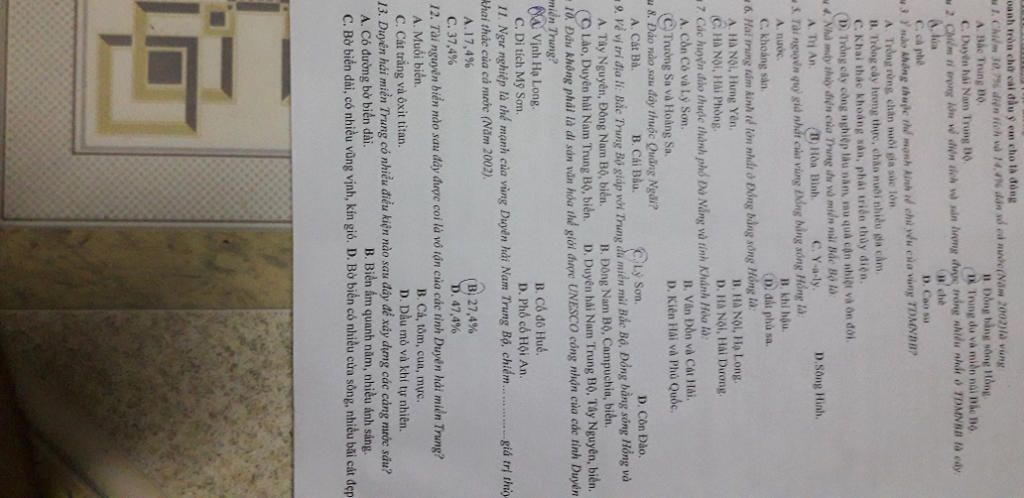 oanh tròn chữ cái đầu ý em cho là đúng
u 1. Chiếm 30,7% diện tích và 14,4% dân số cả nước(Năm 2002)là vùng
A. Bắc Trung Bộ. B. Đồng bằng sông Hồng.
C. Duyên hải Nam Trung Bộ. D. Trung du và miền núi Bắc Bộ.
u 2. Chiếm tỉ trọng lớn về diện tích và sản lượng được trồng nhiều nhất ở TDMNBB là cây:
A. lúa B. chè
C. cà phê D. Cao su
u 3. Ý nào không thuộc thế mạnh kinh tế chủ yếu của vùng TDMNBB?
A. Trồng rừng, chăn nuôi gia súc lớn.
B. Trồng cây lương thực, chăn nuôi nhiều gia cầm.
C. Khai thác khoáng sản, phát triển thủy điện.
D. Trồng cây công nghiệp lâu năm, rau quả cận nhiệt và ôn đới.
u 4. Nhà máy thủy điện của Trung du và miền núi Bắc Bộ là
A. Trị An. B. Hòa Bình. C. Y-a-ly. D.Sông Hinh.
u 5. Tài nguyên quý giá nhất của vùng Đồng bằng sông Hồng là:
A. nước. B. khí hậu.
C. khoáng sản. D. đất phù sa.
u 6. Hai trung tâm kinh tế lớn nhất ở Đồng bằng sông Hồng là:
A. Hà Nội, Hưng Yên. B. Hà Nội, Hạ Long.
C. Hà Nội, Hải Phòng. D. Hà Nội, Hải Dương.
u 7. Các huyện đảo thuộc thành phố Đà Nẵng và tỉnh Khánh Hòa là:
A. Cồn Cỏ và Lý Sơn. B. Vân Đồn và Cát Hải.
C. Trường Sa và Hoàng Sa. D. Kiên Hải và Phú Quốc.
u 8. Đảo nào sau đây thuộc Quảng Ngãi?
A. Cát Bà. B. Cái Bầu. C. Lý Sơn. D. Côn Đảo.
u 9. Về vị trí địa lí: Bắc Trung Bộ giáp với Trung du miền núi Bắc Bộ, Đồng bằng sông Hồng và
A. Tây Nguyên, Đông Nam Bộ, biển. B. Đông Nam Bộ, Campuchia, biển.
C. Lào, Duyên hải Nam Trung Bộ, biển. D. Duyên hải Nam Trung Bộ, Tây Nguyên, biển.
u 10. Đâu không phải là di sản văn hóa thế giới được UNESCO công nhận của các tỉnh Duyên
miền Trung?
A. Vịnh Hạ Long. B. Cố đô Huế.
C. Di tích Mỹ Sơn. D. Phố cổ Hội An.
11. Ngư nghiệp là thế mạnh của vùng Duyên hải Nam Trung Bộ, chiếm………….giá trị thủy
khai thác của cả nước (Năm 2002).
A.17,4% B. 27,4%
C. 37,4% D. 47,4%
12. Tài nguyên biển nào sau đây được coi là vô tận của các tỉnh Duyên hải miền Trung?
A. Muối biển. B. Cá, tôm, cua, mực.
C. Cát trắng và ôxit titan. D. Dầu mỏ và khí tự nhiên.
13. Duyên hải miền Trung có nhiều điều kiện nào sau đây để xây dựng các cảng nước sâu?
A. Có đường bờ biển dài. B. Biển ấm quanh năm, nhiều ánh sáng.
C. Bờ biển dài, có nhiều vũng vịnh, kín gió. D. Bờ biển có nhiều cửa sông, nhiều bãi cát đẹp